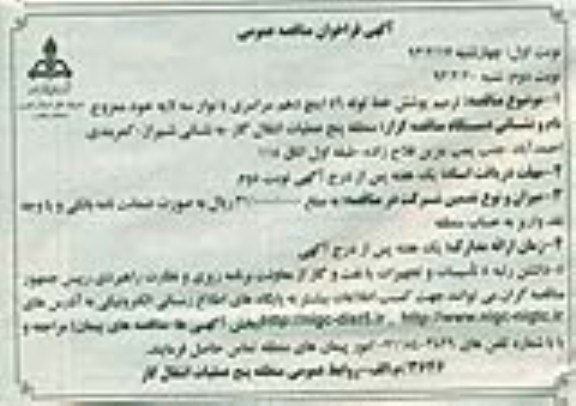 آگهی فراخوان مناقصه عمومی
نوبت اول: چهارشنبه
نوبت دوم: شنبه
۱-موضوع مناقصه: ترمیم پوشش خط لوله اینچ دهم سراسری با نوار سه لایه
نام و نشانی دستگاه مناقصه گزار: منطقه پنج عملیات انتقال گاز به نشانی شیراز، کمربندی
احمدآباد، جنب پمپ بنزین فلاح زاده، طبقه اول اتاق ۱۱۵
۲-مهلت دریافت اسناد: یک هفته پس از درج آگهی نوبت دوم
۳-میزان و نوع تضمین شرکت در مناقصه: به مبلغ ریال به صورت ضمانت نامه بانکی و یا وجه
نقد واریز به حساب منطقه
۴-زمان ارائه مدارک: یک هفته پس از درج آگهی
۵-داشتن رتبه ۵ تأسیسات و تجهیزات یا نفت و گاز از معاونت برنامه ریزی و نظارت راهبردی رییس جمهور
مناقصه گران می توانند جهت کسب اطلاعات بیشتر به پایگاه های اطلاع رسانی الکترونیکی به آدرس های
http://nigc-dist5.ir , http://www.nigc-nigtc.ir بخش آگهی ها (مناقصه های پیمان) مراجعه و
یا با شماره تلفن های امور پیمان های منطقه تماس حاصل فرمایند.
روابط عمومی منطقه پنج عملیات انتقال گاز